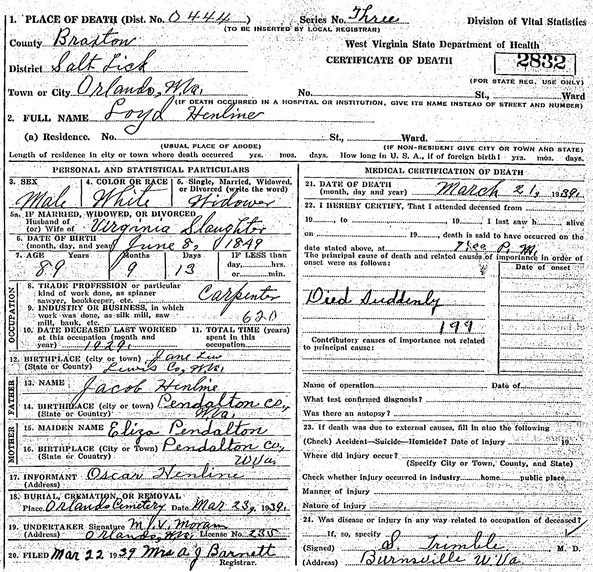 1. PLACE OF DEATH (Dist. No. 0444) Series No. Three Division of Vital Statistics
(TO BE INSERTED BY LOCAL REGISTRAR)
County Braxton West Virginia State Department of Health
District Salt Lick CERTIFICATE OF DEATH 2832
(FOR STATE REG. USE ONLY)
Town or City Orlando, W.Va. No. St., Ward
(IF DEATH OCCURRED IN A HOSPITAL OR INSTITUTION, GIVE ITS NAME INSTEAD OF STREET AND NUMBER)
2. FULL NAME Loyd Henline
(a) Residence. No. St., Ward.
(USUAL PLACE OF ABODE) (IF NON-RESIDENT GIVE CITY OR TOWN AND STATE)
Length of residence in city or town where death occurred yrs. mos. days. How long in U. S. A., if of foreign birth? yrs. mos. days.
PERSONAL AND STATISTICAL PARTICULARS
3. SEX 4. COLOR OR RACE 5. Single, Married, Widowed,
or Divorced (write the word)
Male White Widower
5a. IF MARRIED, WIDOWED, OR DIVORCED
Husband of
(or) Wife of Virginia Slaughter
6. DATE OF BIRTH
(month, day, and year) June 8, 1849
7. AGE Years Months Days IF LESS than
day, hrs.
or min.
89 9 13
OCCUPATION
8. TRADE, PROFESSION or particular
kind of work done, as spinner
sawyer, bookkeeper, etc. Carpenter
9. INDUSTRY OR BUSINESS, in which
work was done, as silk mill, saw
mill, bank, etc. 620
10. DATE DECEASED LAST WORKED
at this occupation (month and
year) 1929
11. TOTAL TIME (years)
spent in this
occupation
12. BIRTHPLACE (city or town) Jane Lew
(State or County) Lewis Co, W.Va.
FATHER
13. NAME Jacob Henline
14. BIRTHPLACE (city or town) Pendalton Co,
(State or County) W.Va.
MOTHER
15. MAIDEN NAME Eliza Pendalton
16. BIRTHPLACE (City or Town) Pendalton Co,
(State or County) W.Va
17. INFORMANT Oscar Henline
(Address)
18. BURIAL, CREMATION, OR REMOVAL
Place Orlando Cemetery Date Mar 23, 1939.
19. UNDERTAKER Signature M. V. Moran
(Address) Orlando, W.Va. License No. 235
20. FILED Mar 22 1939 Mrs A J Barnett
Registrar.
MEDICAL CERTIFICATION OF DEATH
21. DATE OF DEATH
(month, day and year) March 21, 1939.
22. I HEREBY CERTIFY, That I attended deceased from
19 to 19 I last saw h alive
on 19 death is said to have occurred on the
date stated above, at P. M.
The principal cause of death and related causes of importance in order of
onset were as follows:
Date of onset
Died Suddenly
199
Contributory causes of importance not related
to principal cause:
Name of operation Date of
What test confirmed diagnosis?
Was there an autopsy?
23. If death was due to external causes, fill in also the following
(Check) Accident—Suicide—Homicide? Date of injury 19
Where did injury occur?
(Specify City or Town, County, and State)
Check whether injury occurred in industry home public place
Manner of injury
Nature of injury
24. Was disease or injury in any way related to occupation of deceased?
If, so, specify
(Signed) S. Trimble M. D.
(Address) Burnsville W.Va.